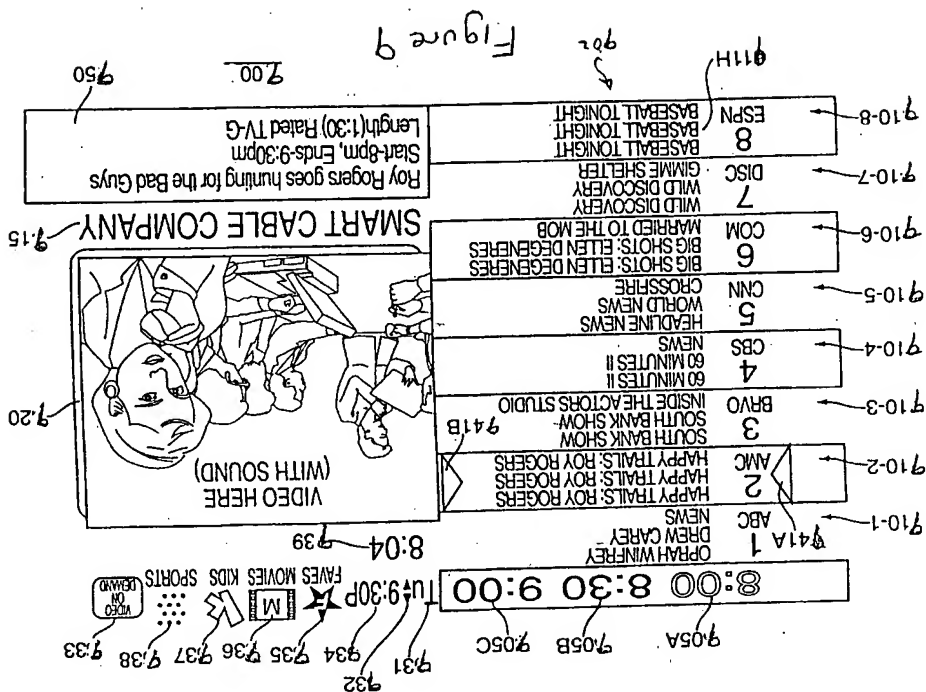 905A 905B 905C 931 932 934 935 936 937 938 933
8:00 8:30 9:00
Tu 9:30P
F
M
FAVES MOVIES KIDS SPORTS
VIDEO
ON
DEMAND
8:04 939
910-1
1
ABC
OPRAH WINFREY
DREW CAREY
NEWS
941A
910-2
2
AMC
HAPPY TRAILS: ROY ROGERS
HAPPY TRAILS: ROY ROGERS
HAPPY TRAILS: ROY ROGERS
941B
910-3
3
BRVO
SOUTH BANK SHOW
SOUTH BANK SHOW
INSIDE THE ACTORS STUDIO
910-4
4
CBS
60 MINUTES II
60 MINUTES II
NEWS
910-5
5
CNN
HEADLINE NEWS
WORLD NEWS
CROSSFIRE
910-6
6
COM
BIG SHOTS: ELLEN DEGENERES
BIG SHOTS: ELLEN DEGENERES
MARRIED TO THE MOB
910-7
7
DISC
WILD DISCOVERY
WILD DISCOVERY
GIMME SHELTER
910-8
8
ESPN
BASEBALL TONIGHT
BASEBALL TONIGHT
BASEBALL TONIGHT
911H
902
VIDEO HERE
(WITH SOUND)
920
SMART CABLE COMPANY 915
Roy Rogers goes hunting for the Bad Guys
Start-8pm, Ends-9:30pm
Length(1:30) Rated TV-G
900
950
Figure 9